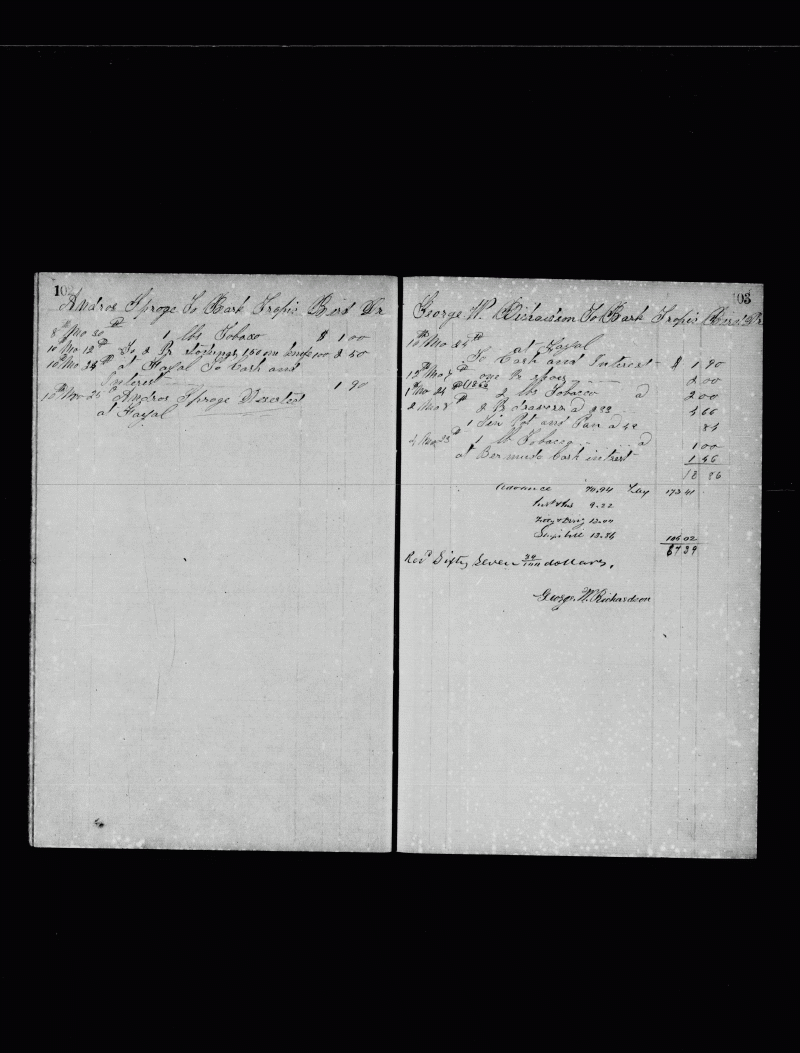 102
Andros Sproge To Bark Tropic Bird Dr
8th Mo 30th 1 lbs Tobaco $ 1 00
10 Mo 12th To 2 Pr Stockings 1.50 one knife 1 00 2 50
10th Mo 25th at Fayal To Cash and
Interest 1 90
10th Mo 25th Andros Sproge Deserted
at Fayal
103
George W. Richardson To Bark Tropic Bird Dr
10th Mo 25th at Fayal
To Cash and Interest $ 1 90
12th Mo 7th one Pr shoes 2 00
1st Mo 24th 2 lbs Tobacco a 2 00
2 Mo 8th 2 Pr drawers a 2 33 4 66
1 Tin Pot and Pan a 42 84
4 Mo 25th 1 lb Tobacco a 1 00
at Bermuda Cash intrest 1 46
13 86
Advance 70.94 Lay 173 41
9.22
13.86
106 02
67 39
Recd Sixty Seven 39/100 dollars,
George W. Richardson